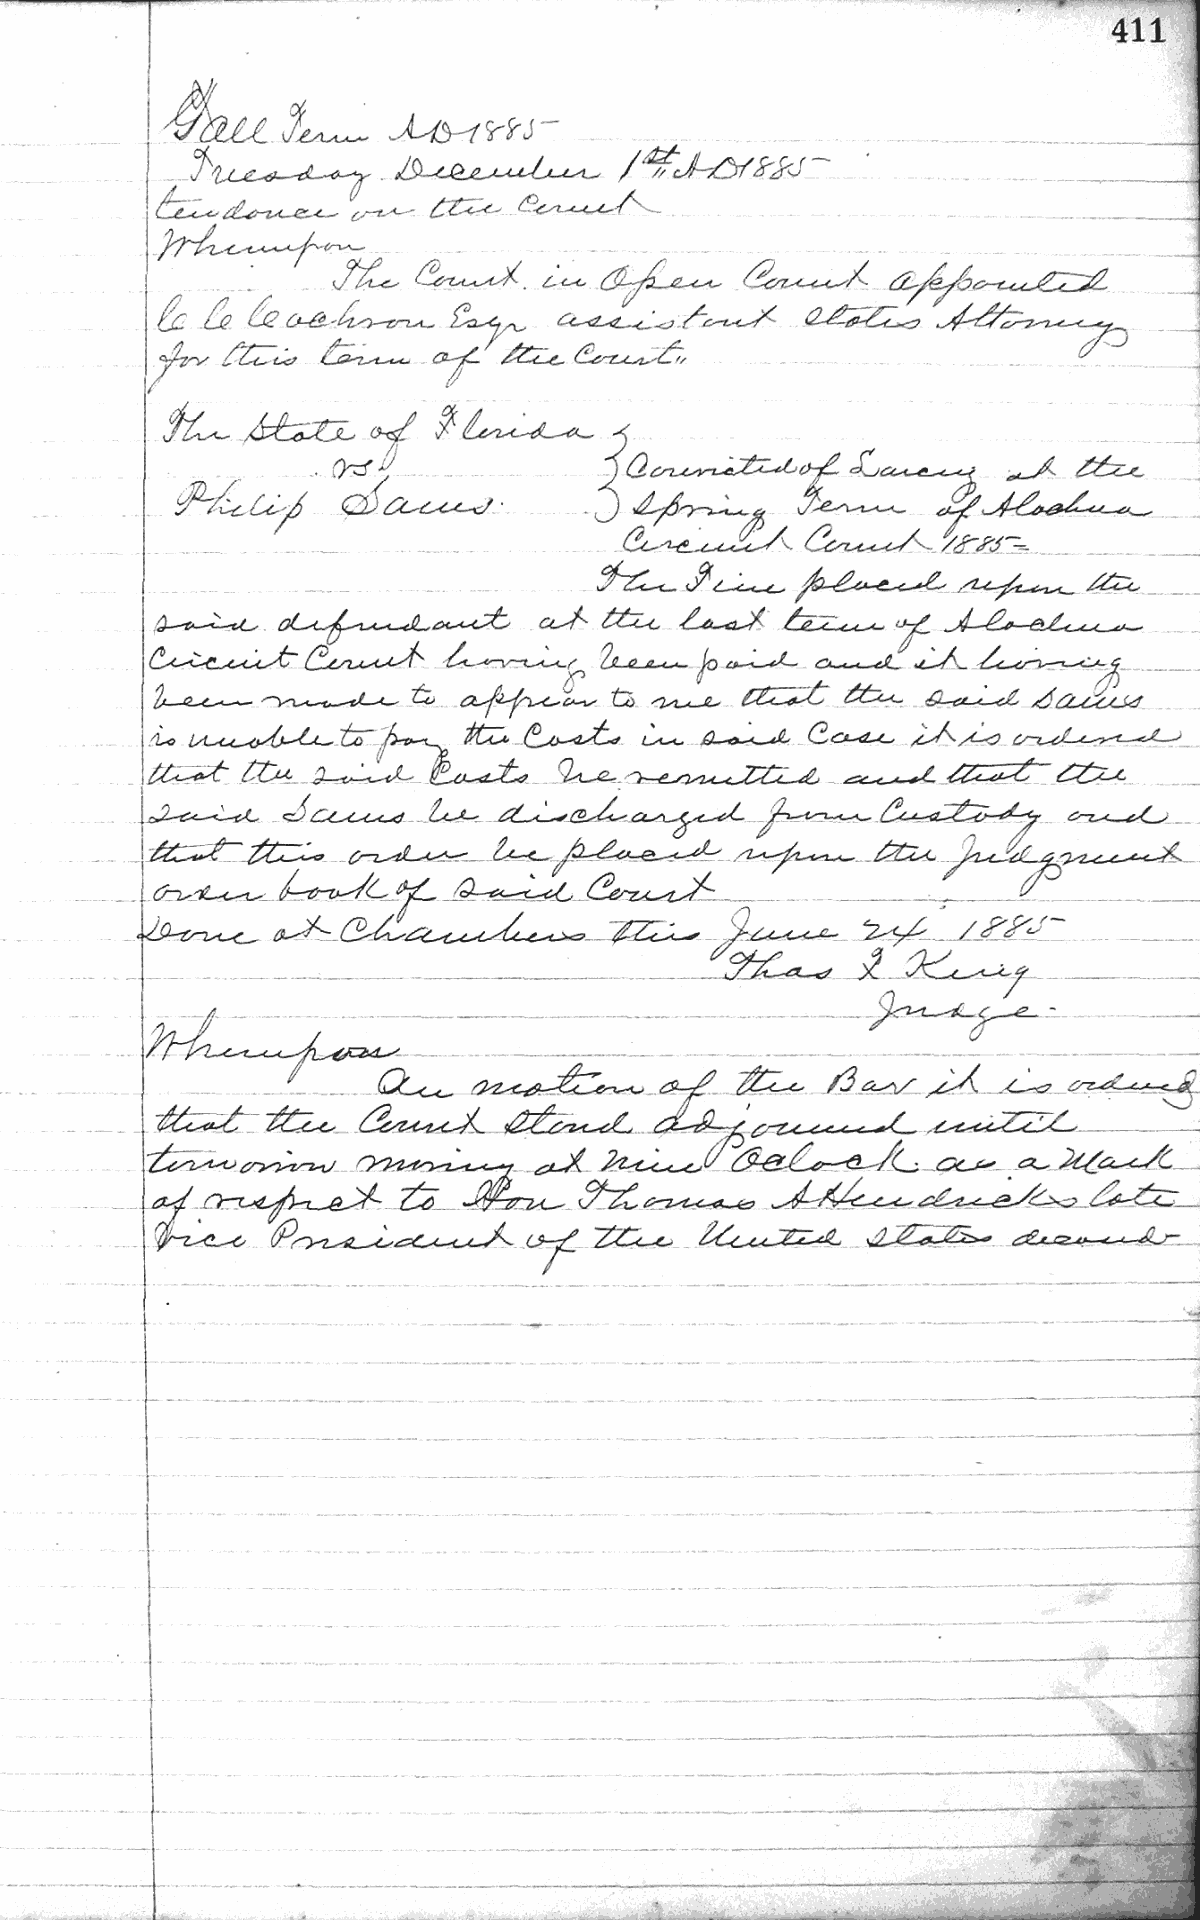 411
Fall Term AD 1885
Tuesday December 1st AD 1885
tendance on the Court
Whereupon
The Court in Open Court appointed
C C Cochron Esqr assistant States Attorney
for this term of the Court"
The State of Florida }
vs } Convicted of Larceny at the
Philip Sams. } Spring Term of Alachua
Circuit Court 1885 =
The Fine placed upon the
said defendant at the last term of Alachua
Circuit Court having been paid and it having
been made to appear to me that the said Sams
is unable to pay the Costs in said Case it is ordered
that the said Costs be remitted and that the
said Sams be discharged from Custody and
that this order be placed upon the Judgment
order book of said Court
Done at Chambers this June 24 1885
Thos F King
Judge-
Whereupon
On motion of the Bar it is ordered
that the Court Stand adjourned until
tomorrow morning at Nine Oclock as a Mark
of respect to Hon Thomas A Hendricks late
Vice President of the United States deceased-